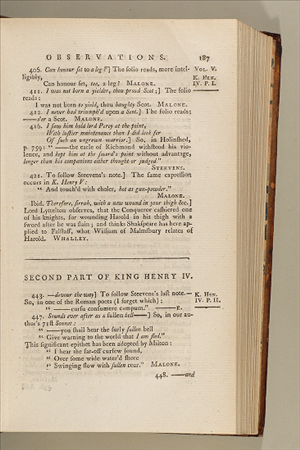 OBSERVATIONS. 187
406. Can honour set to a leg?] The folio reads, more intel- Vol. V.
ligibly, K. Hen.
Can honour set, too, a leg? MALONE. IV. P. I.
411. I was not born a yielder, thou proud Scot;] The folio
reads:
I was not born to yield, thou haughty Scot. MALONE.
412. I never had triumph'd upon a Scot.] The folio reads:
—o'er a Scot. MALONE.
416. I saw him hold lord Percy at the point,
With lustier maintenance than I did look for
Of such an ungrown warrior.] So, in Holinshed,
p. 759: "—the earle of Richmond withstood his vio-
lence, and kept him at the sword's point without advantage,
longer than his companions either thought or judged."
STEEVENS.
421. To follow Steevens's note.] The same expression
occurs in K. Henry V:
"And touch'd with choler, hot as gun-powder."
MALONE.
Ibid. Therefore, sirrah, with a new wound in your thigh &c.]
Lord Lyttelton observes, that the Conqueror cashiered one
of his knights, for wounding Harold in his thigh with a
sword after he was slain; and thinks Shakspeare has here ap-
plied to Falstaff, what William of Malmsbury relates of
Harold. WHALLEY.
SECOND PART OF KING HENRY IV.
443. —devour the way] To follow Steevens's last note.— K. Hen.
So, in one of the Roman poets (I forget which): IV. P. II.
"——cursu consumere campum." ——E.
447. Sounds ever after as a sullen bell——] So, in our au-
thor's 71st Sonnet:
"——you shall hear the surly sullen bell
"Give warning to the world that I am fled."
This significant epithet has been adopted by Milton:
"I hear the far-off curfew sound,
"Over some wide water'd shore
"Swinging slow with sullen roar." MALONE.
448. —and